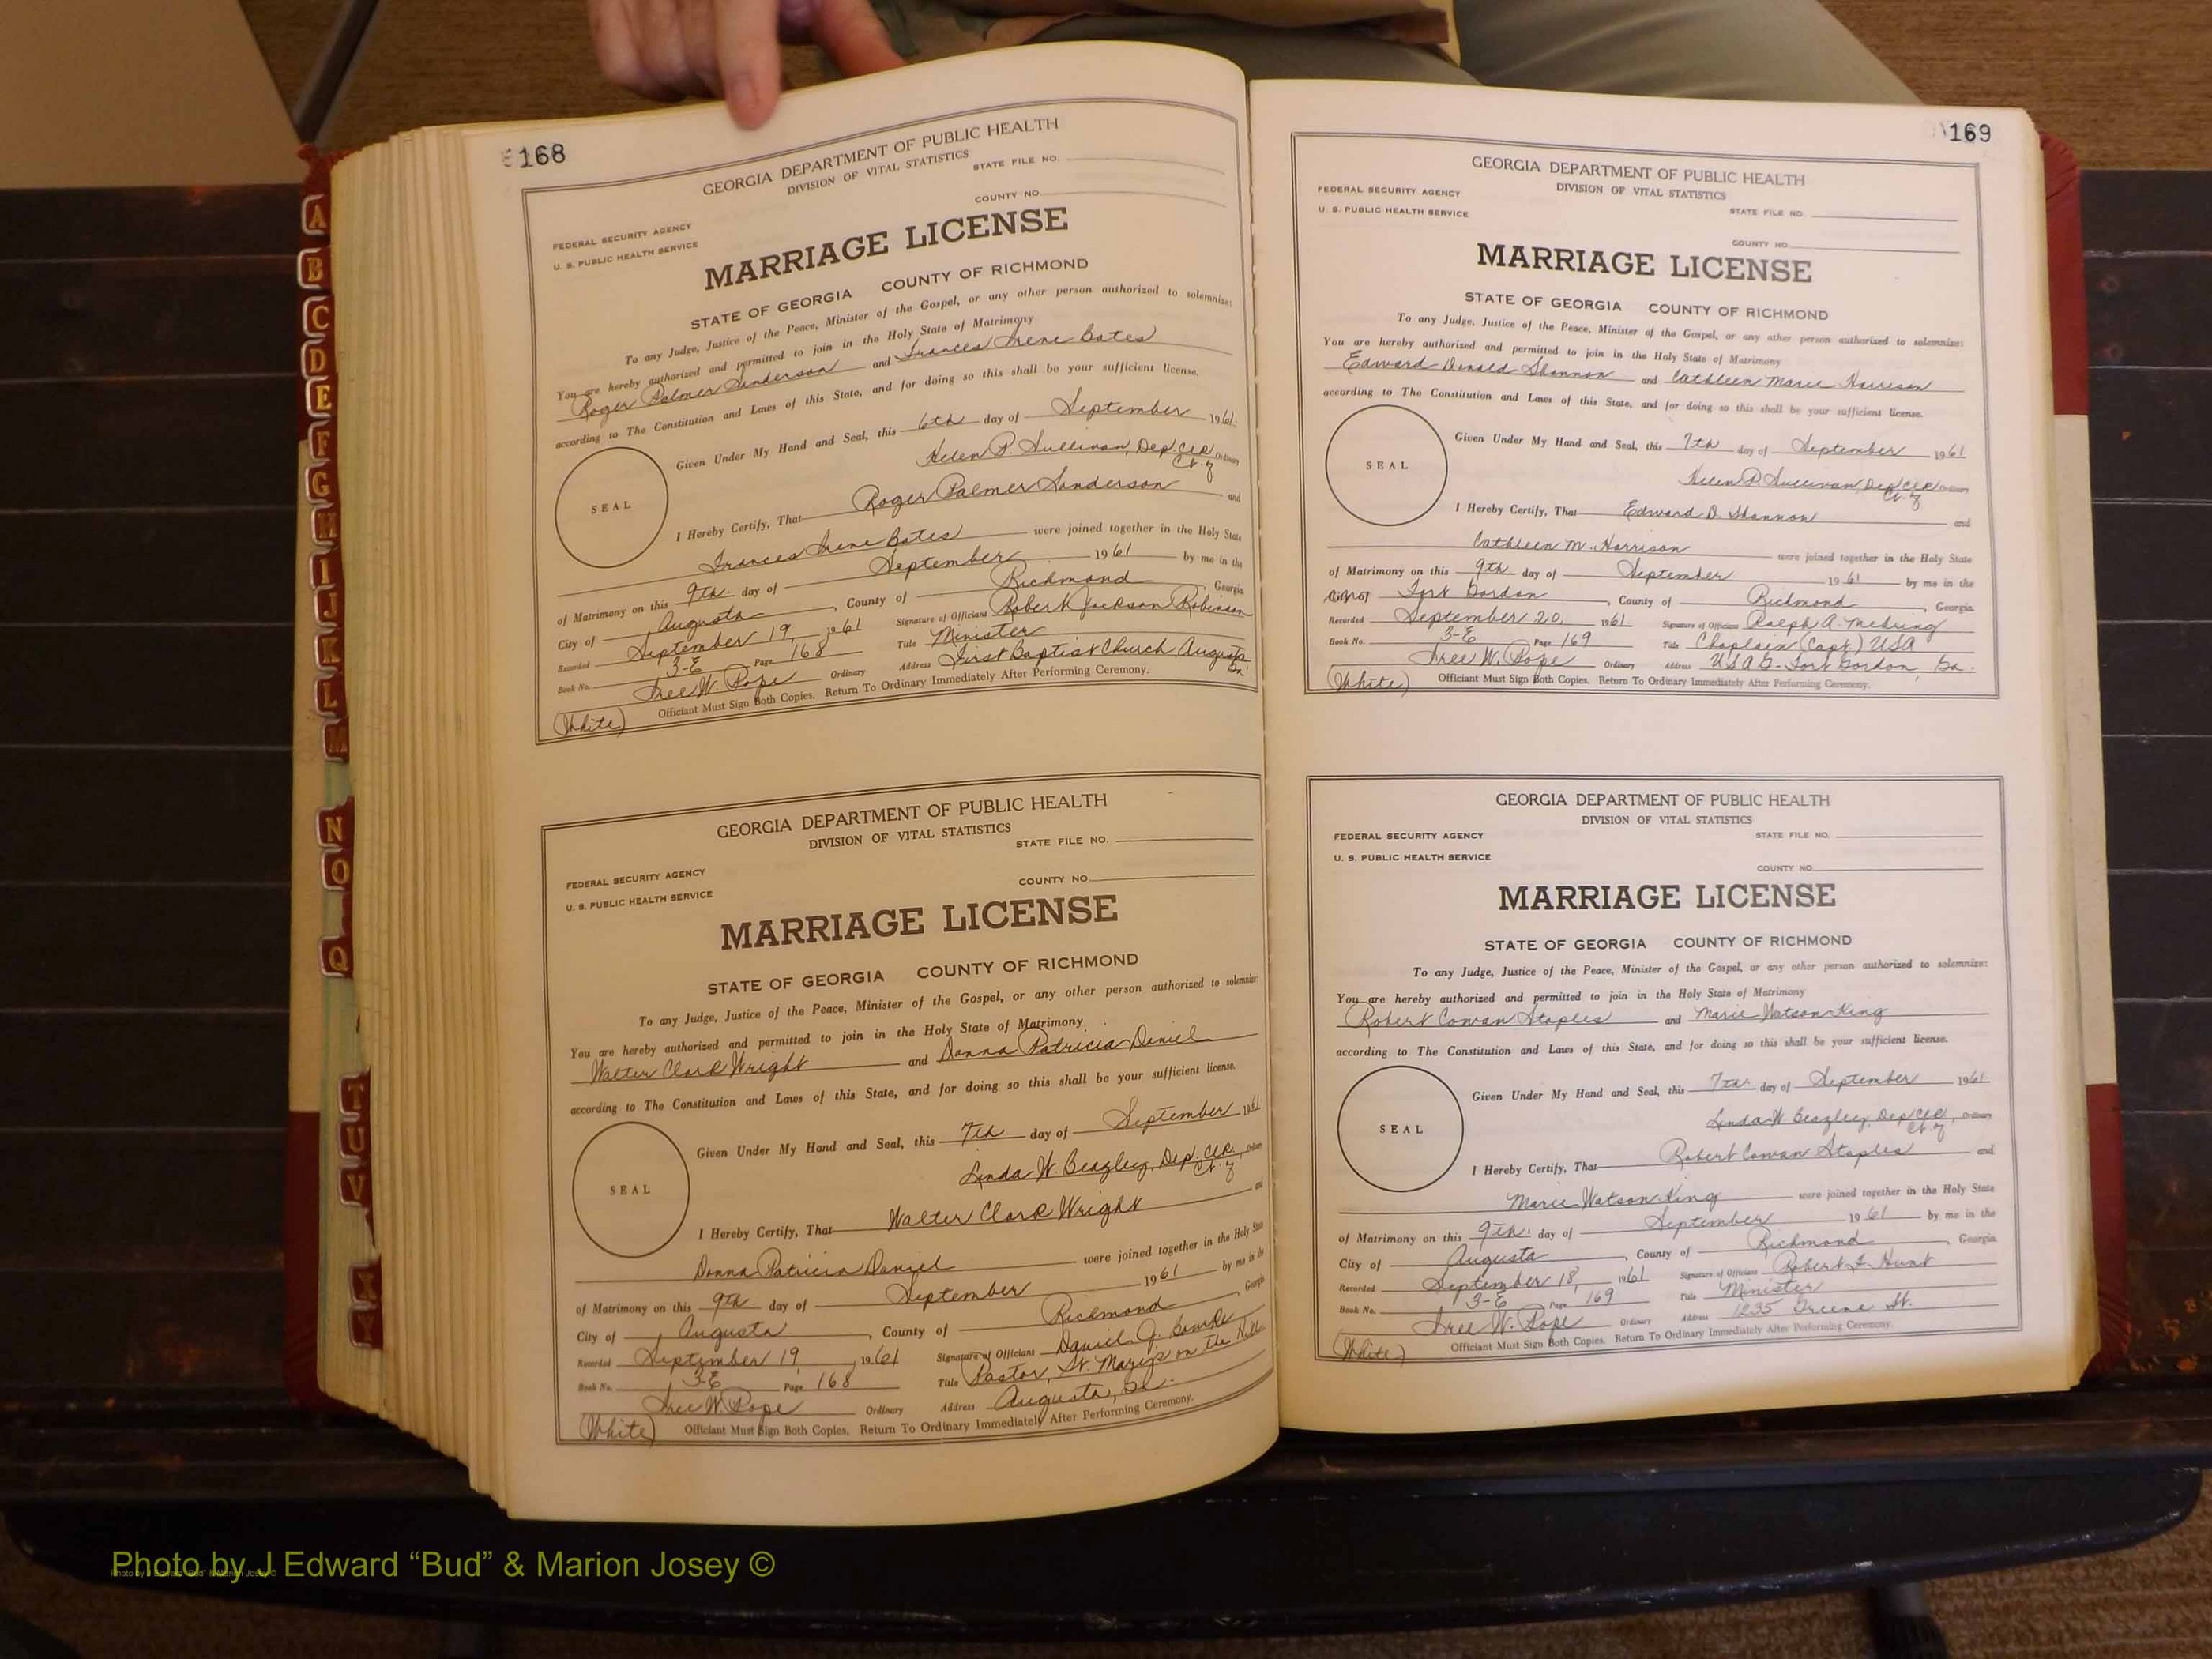 168
GEORGIA DEPARTMENT OF PUBLIC HEALTH
DIVISION OF VITAL STATISTICS
STATE FILE NO.
COUNTY NO.
FEDERAL SECURITY AGENCY
U. S. PUBLIC HEALTH SERVICE
MARRIAGE LICENSE
STATE OF GEORGIA COUNTY OF RICHMOND
To any Judge, Justice of the Peace, Minister of the Gospel, or any other person authorized to solemnize:
You are hereby authorized and permitted to join in the Holy State of Matrimony
Roger Palmer Sanderson and Frances Irene Bates
according to The Constitution and Laws of this State, and for doing so this shall be your sufficient license.
Given Under My Hand and Seal, this 6th day of September 1961
Helen P. Sullivan, Dep. Clk. Ordinary
SEAL
I Hereby Certify, That Roger Palmer Sanderson and
Frances Irene Bates were joined together in the Holy State
of Matrimony on this 9th day of September 1961 by me in the
City of Augusta, County of Richmond, Georgia
Recorded September 19, 1961 Signature of Officiant Robert Jackson Robinson
Book No. 3-E Page 168 Title Minister
Free W. Pope Ordinary Address First Baptist Church Augusta Ga.
(White) Officiant Must Sign Both Copies. Return To Ordinary Immediately After Performing Ceremony.
GEORGIA DEPARTMENT OF PUBLIC HEALTH
DIVISION OF VITAL STATISTICS
STATE FILE NO.
COUNTY NO.
FEDERAL SECURITY AGENCY
U. S. PUBLIC HEALTH SERVICE
MARRIAGE LICENSE
STATE OF GEORGIA COUNTY OF RICHMOND
To any Judge, Justice of the Peace, Minister of the Gospel, or any other person authorized to solemnize:
You are hereby authorized and permitted to join in the Holy State of Matrimony
Walter Clark Wright and Donna Patricia Daniel
according to The Constitution and Laws of this State, and for doing so this shall be your sufficient license.
Given Under My Hand and Seal, this 7th day of September 1961
Linda W. Beazley, Dep. Clk.
SEAL
I Hereby Certify, That Walter Clark Wright and
Donna Patricia Daniel were joined together in the Holy State
of Matrimony on this 9th day of September 1961 by me in the
City of Augusta, County of Richmond Georgia
Recorded September 19, 1961 Signature of Officiant Daniel J. Bourke
Book No. 3-E Page 168 Title Pastor, St. Mary's on the Hill
Free W. Pope Ordinary Address Augusta, Ga.
(White) Officiant Must Sign Both Copies. Return To Ordinary Immediately After Performing Ceremony.
169
GEORGIA DEPARTMENT OF PUBLIC HEALTH
DIVISION OF VITAL STATISTICS
FEDERAL SECURITY AGENCY
U. S. PUBLIC HEALTH SERVICE
STATE FILE NO.
COUNTY NO.
MARRIAGE LICENSE
STATE OF GEORGIA COUNTY OF RICHMOND
To any Judge, Justice of the Peace, Minister of the Gospel, or any other person authorized to solemnize:
You are hereby authorized and permitted to join in the Holy State of Matrimony
Edward Donald Shannon and Cathleen Marie Harrison
according to The Constitution and Laws of this State, and for doing so this shall be your sufficient license.
Given Under My Hand and Seal, this 7th day of September 1961
Helen P. Sullivan, Dep. Clk. Ordinary
SEAL
I Hereby Certify, That Edward D. Shannon and
Cathleen M. Harrison were joined together in the Holy State
of Matrimony on this 9th day of September 1961 by me in the
City of Fort Gordon, County of Richmond, Georgia
Recorded September 20, 1961 Signature of Officiant Ralph A. Mehring
Book No. 3-E Page 169 Title Chaplain (Capt) USA
Free W. Pope Ordinary Address USAG-Fort Gordon, Ga.
(White) Officiant Must Sign Both Copies. Return To Ordinary Immediately After Performing Ceremony.
GEORGIA DEPARTMENT OF PUBLIC HEALTH
DIVISION OF VITAL STATISTICS
FEDERAL SECURITY AGENCY
STATE FILE NO.
U. S. PUBLIC HEALTH SERVICE
COUNTY NO.
MARRIAGE LICENSE
STATE OF GEORGIA COUNTY OF RICHMOND
To any Judge, Justice of the Peace, Minister of the Gospel, or any other person authorized to solemnize:
You are hereby authorized and permitted to join in the Holy State of Matrimony
Robert Cowan Staples and Marie Watson King
according to The Constitution and Laws of this State, and for doing so this shall be your sufficient license.
Given Under My Hand and Seal, this 7th day of September 1961
Linda W. Beazley, Dep. Clk., Ordinary
SEAL
I Hereby Certify, That Robert Cowan Staples and
Marie Watson King were joined together in the Holy State
of Matrimony on this 9th day of September 1961 by me in the
City of Augusta, County of Richmond, Georgia
Recorded September 18, 1961 Signature of Officiant Robert F. Hunt
Book No. 3-E Page 169 Title Minister
Free W. Pope Ordinary Address 1235 Greene St.
(White) Officiant Must Sign Both Copies. Return To Ordinary Immediately After Performing Ceremony.
A
B
C
D
E
F
G
H
I
J
K
L
M
N
O
Q
T
U
V
X
Y
Photo by J Edward “Bud” & Marion Josey ©
Photo by J Edward “Bud” & Marion Josey ©